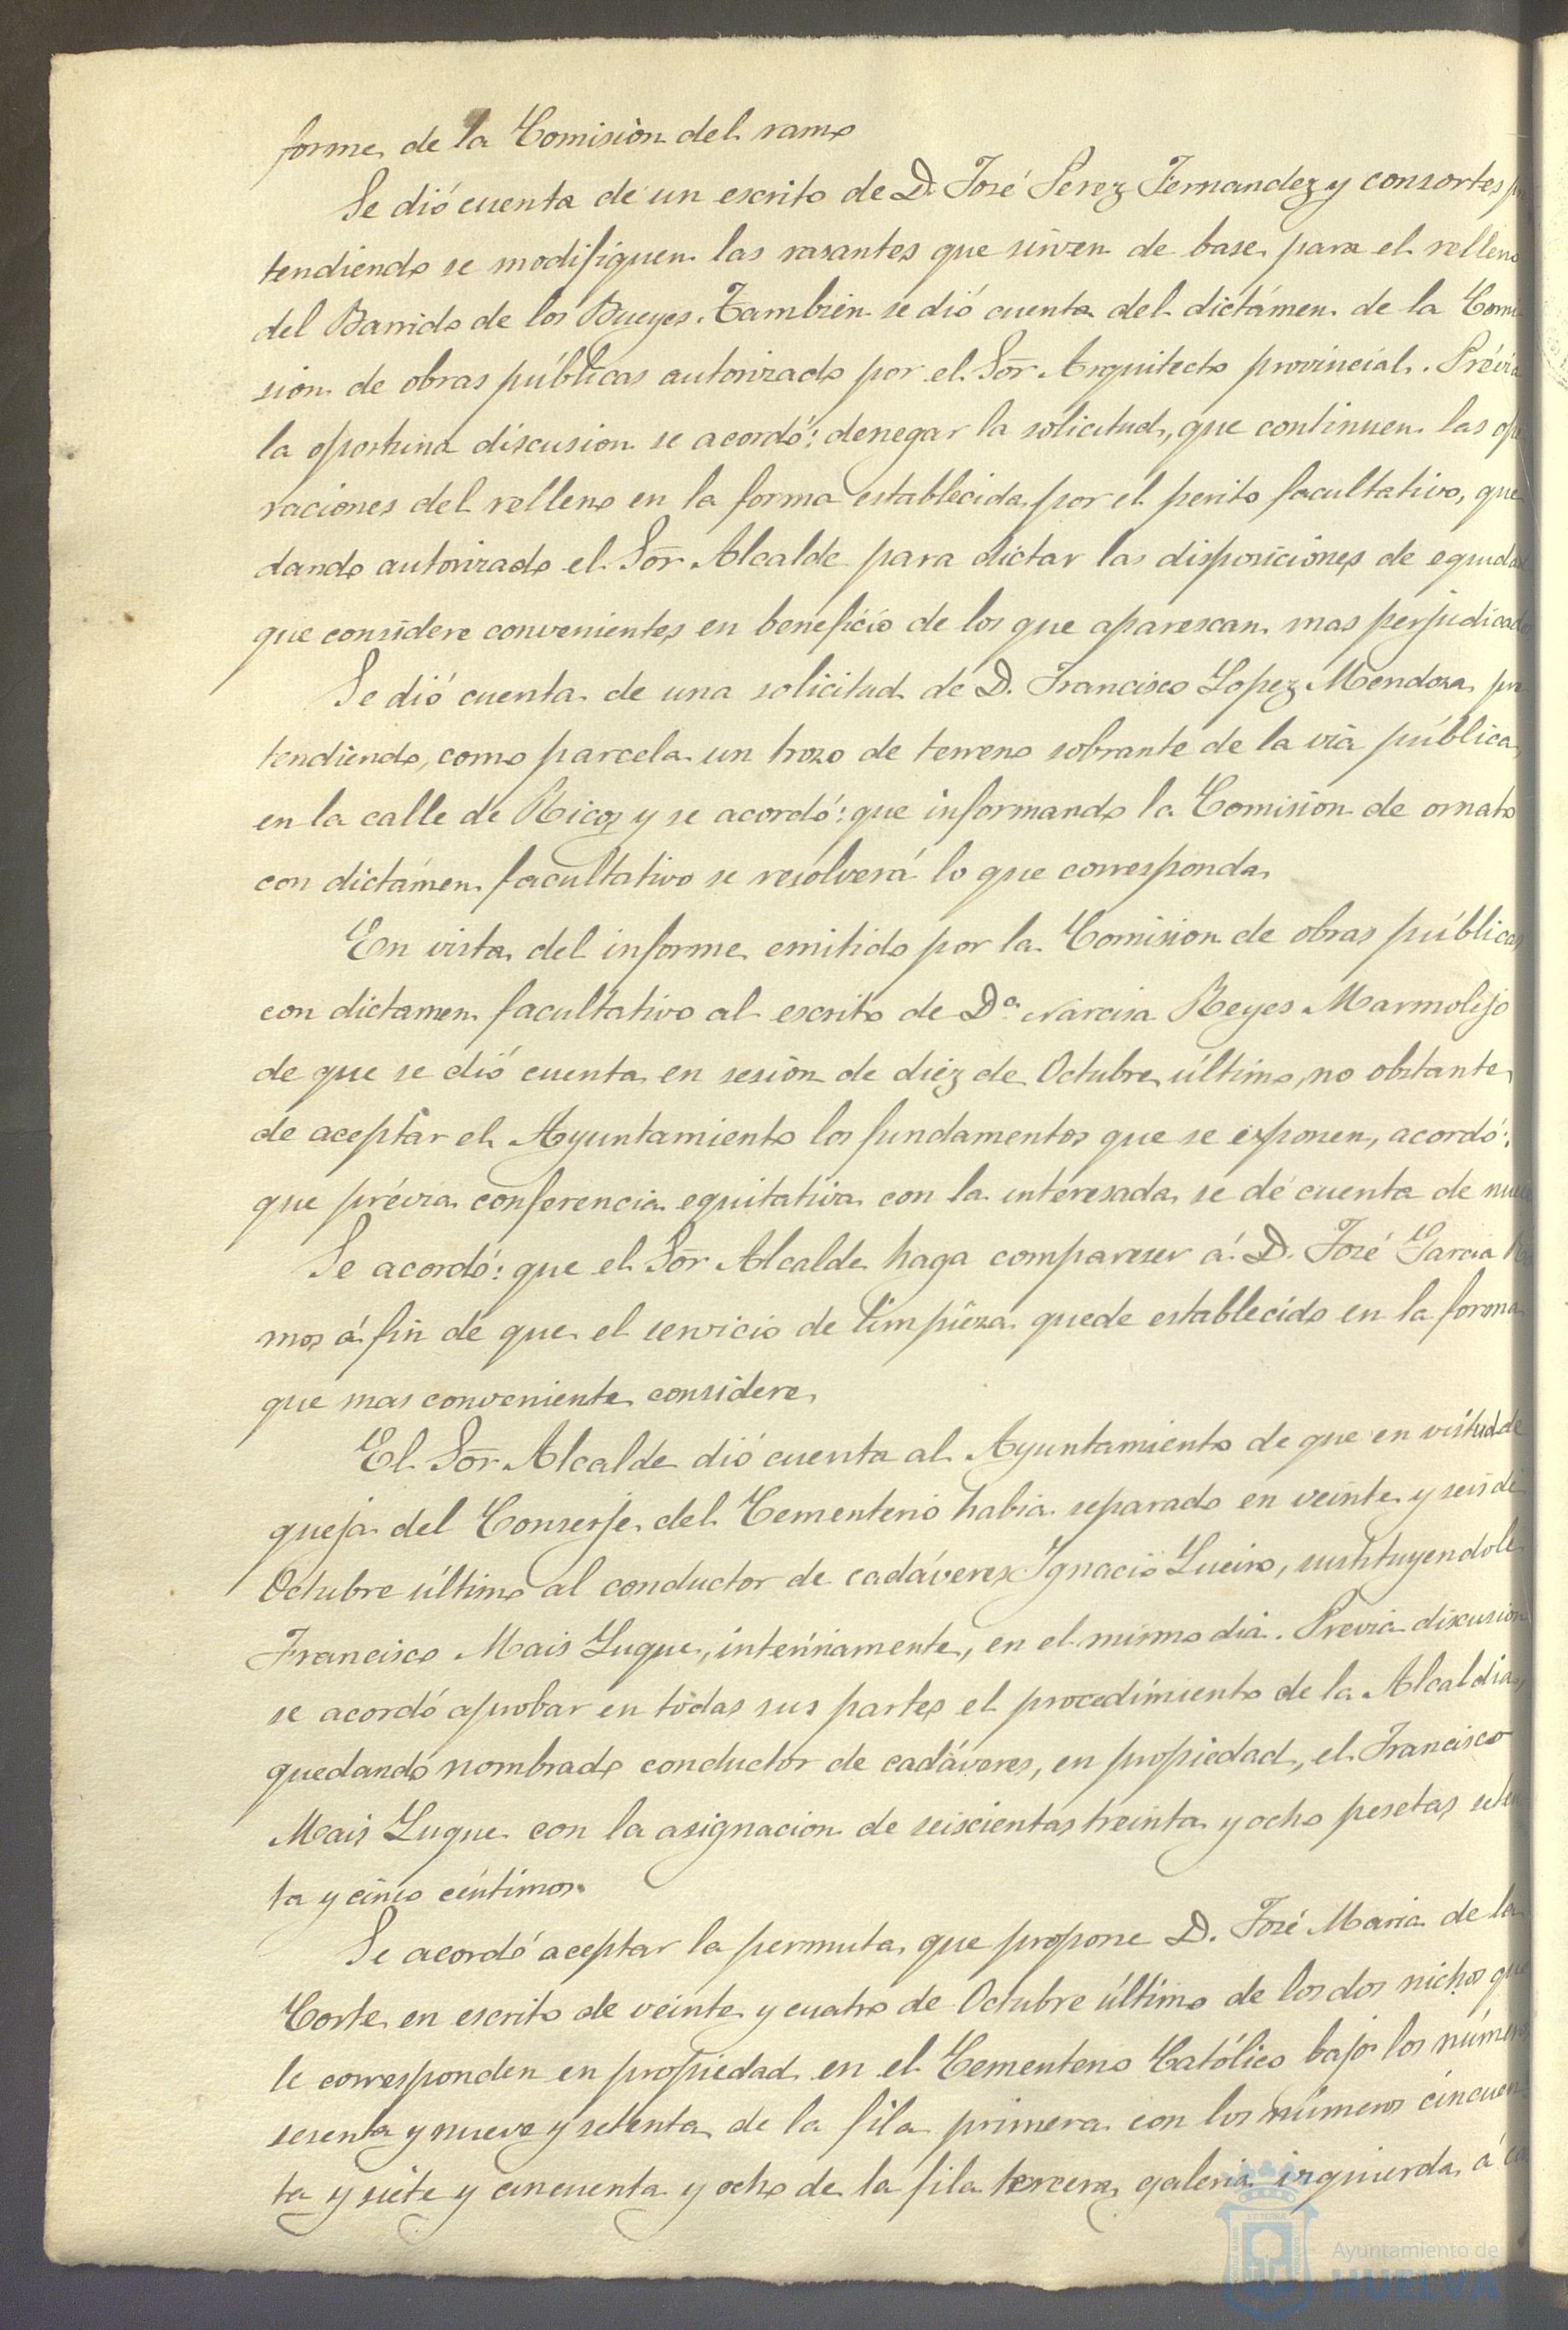 forme de la Comision del ramo
Se dió cuenta de un escrito de D. José Perez Fernandez y consortes
tendiendo se modifiquen las rasantes que sirven de base para el relleno
del Barrido de los Bueyes. Tambien se dió cuenta del dictámen de la Comi
sion de obras públicas autorizado por el Sor Arquitecto provincial. Prévia
la oportuna discusion se acordó: denegar la solicitud, que continuen las ope
raciones del relleno en la forma establecida por el perito facultativo, que
dando autorizado el Sor Alcalde para dictar las disposiciones de equidad
que considere convenientes en beneficio de los que aparescan mas perjudicados
Se dió cuenta de una solicitud de D. Francisco Lopez Mendoza pre
tendiendo, como parcela un trozo de terreno sobrante de la via pública
en la calle de Ricos y se acordó: que informando la Comision de ornato
con dictámen facultativo se resolverá lo que corresponda
En vista del informe emitido por la Comision de obras públicas
con dictamen facultativo al escrito de Da. Narcisa Reyes Marmolijo
de que se dió cuenta en sesion de diez de Octubre último, no obstante
de aceptar el Ayuntamiento los fundamentos que se exponen, acordó:
que prévia conferencia equitativa con la interesada se dé cuenta de nuevo
Se acordó: que el Sor Alcalde haga compareser á D. José Garcia
mos á fin de que el servicio de limpieza quede establecido en la forma
que mas conveniente considere
El Sor Alcalde dió cuenta al Ayuntamiento de que en virtud de
queja del Conserje del Cementerio habia separado en veinte y seis de
Octubre último al conductor de cadáveres Ignacio Lueiro, sustituyendole
Francisco Mais Luque, interinamente, en el mismo dia. Previa discusion
se acordó aprobar en todas sus partes el procedimiento de la Alcaldia,
quedando nombrado conductor de cadáveres, en propiedad, el Francisco
Mais Luque con la asignacion de seiscientas treinta y ocho pesetas seten
ta y cinco céntimos.
Se acordó aceptar la permuta que propone D. José Maria de la
Corte en escrito de veinte y cuatro de Octubre último de los dos nichos que
le corresponden en propiedad en el Cementerio Católico bajo los números
sesenta y nueve y setenta de la fila primera con los números cincuen
ta y siete y cincuenta y ocho de la fila tercera galeria izquierda á
Ayuntamiento de
HUELVA